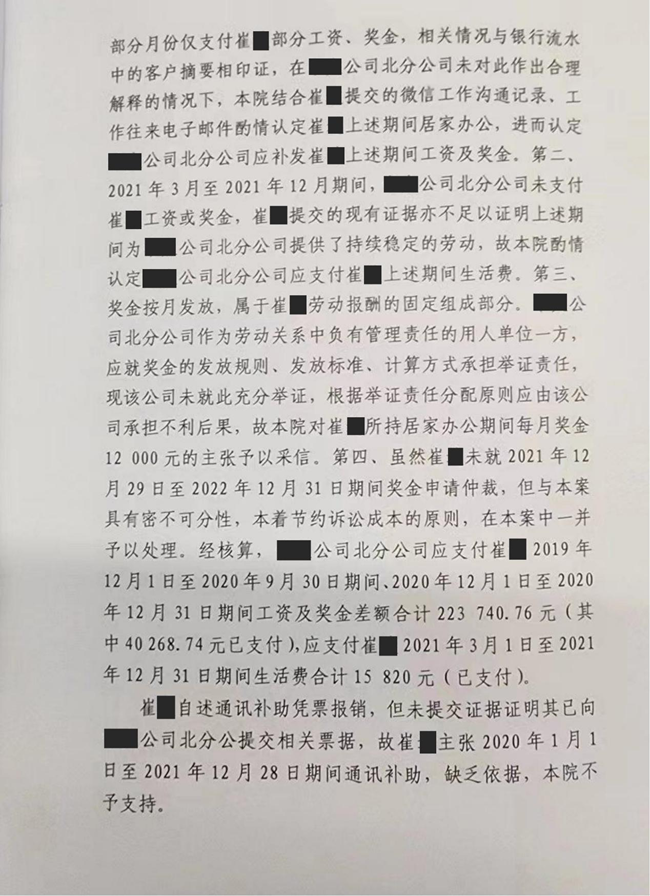 部分月份仅支付崔 部分工资、奖金，相关情况与银行流水
中的客户摘要相印证，在 公司北分公司未对此作出合理
解释的情况下，本院结合崔 提交的微信工作沟通记录、工
作往来电子邮件酌情认定崔 上述期间居家办公，进而认定
公司北分公司应补发崔 上述期间工资及奖金。第二、
2021 年 3 月至 2021 年 12 月期间， 公司北分公司未支付
崔 工资或奖金，崔 提交的现有证据亦不足以证明上述期
间为 公司北分公司提供了持续稳定的劳动，故本院酌情
认定 公司北分公司应支付崔 上述期间生活费。第三、
奖金按月发放，属于崔 劳动报酬的固定组成部分。 公
司北分公司作为劳动关系中负有管理责任的用人单位一方，
应就奖金的发放规则、发放标准、计算方式承担举证责任，
现该公司未就此充分举证，根据举证责任分配原则应由该公
司承担不利后果，故本院对崔 所持居家办公期间每月奖金
12 000 元的主张予以采信。第四、虽然崔 未就 2021 年 12
月 29 日至 2022 年 12 月 31 日期间奖金申请仲裁，但与本案
具有密不可分性，本着节约诉讼成本的原则，在本案中一并
予以处理。经核算， 公司北分公司应支付崔 2019 年
12 月 1 日至 2020 年 9 月 30 日期间、2020 年 12 月 1 日至 2020
年 12 月 31 日期间工资及奖金差额合计 223 740.76 元（其
中 40 268.74 元已支付），应支付崔 2021 年 3 月 1 日至 2021
年 12 月 31 日期间生活费合计 15 820 元（已支付）。
崔 自述通讯补助凭票报销，但未提交证据证明其已向
公司北分公提交相关票据，故崔 主张 2020 年 1 月 1
日至 2021 年 12 月 28 日期间通讯补助，缺乏依据，本院不
予支持。